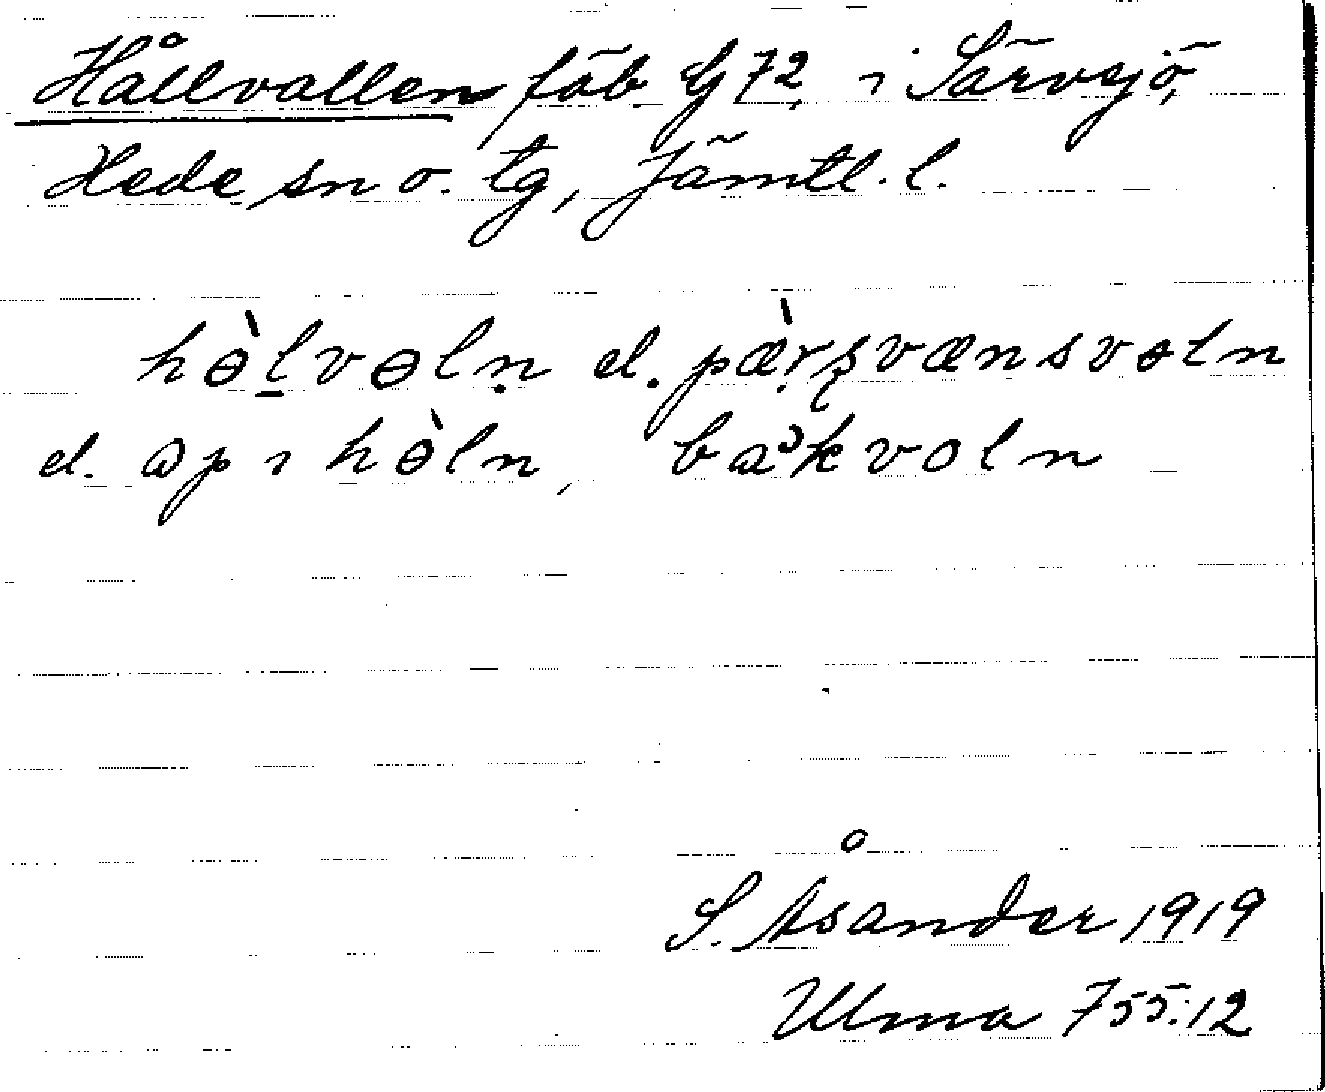 Hållvallen fäb. G 72, i Särvsjö,
Hede sn o. tg, Jämtl. l.
hɵ̀l̠vɵlṇ el. pæ̀ṛʂvænsvɵln
el. ɷpı hɵ̀ln, baʾkvoln
S. Åsander 1919
Ulma 755:12